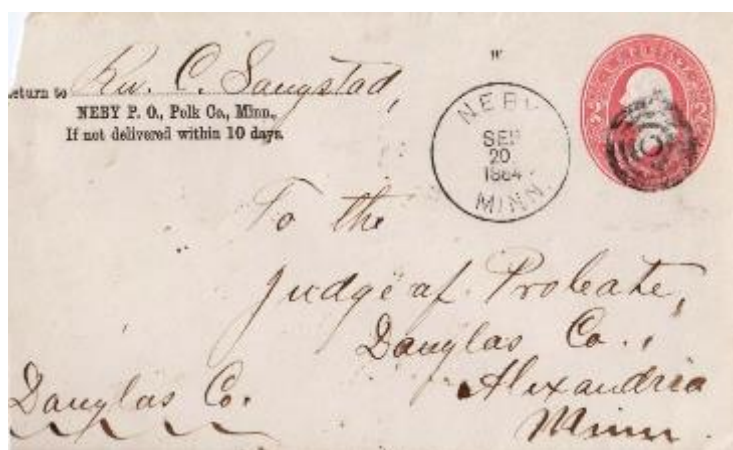 Rev. C. Saugstad,
eturn to
NEBY P. O., Polk Co., Minn.,
If not delivered within 10 days.
NEBY
SEP
20
1884
MINN.
To the
Judge of Probate,
Douglas Co.,
Alexandria
Minn.
Douglas Co.